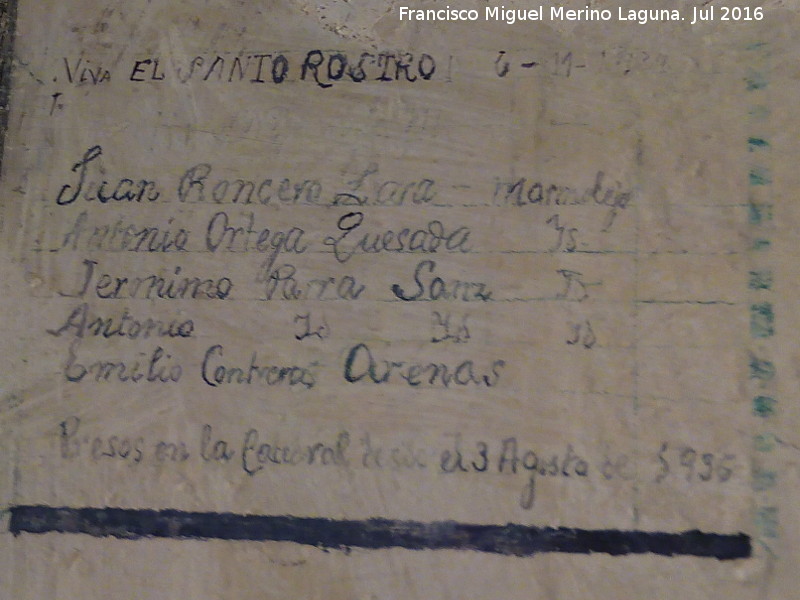 Francisco Miguel Merino Laguna. Jul 2016
Viva EL SANTO ROSTRO! 6 - 11 -
Juan Roncero Lara - Marmolejo
Antonio Ortega Quesada Id
Jermimo Parra Sanz Id
Antonio Id Id Id
Emilio Contreras Arenas
Presos en la Catedral desde el 3 Agosto de 1936